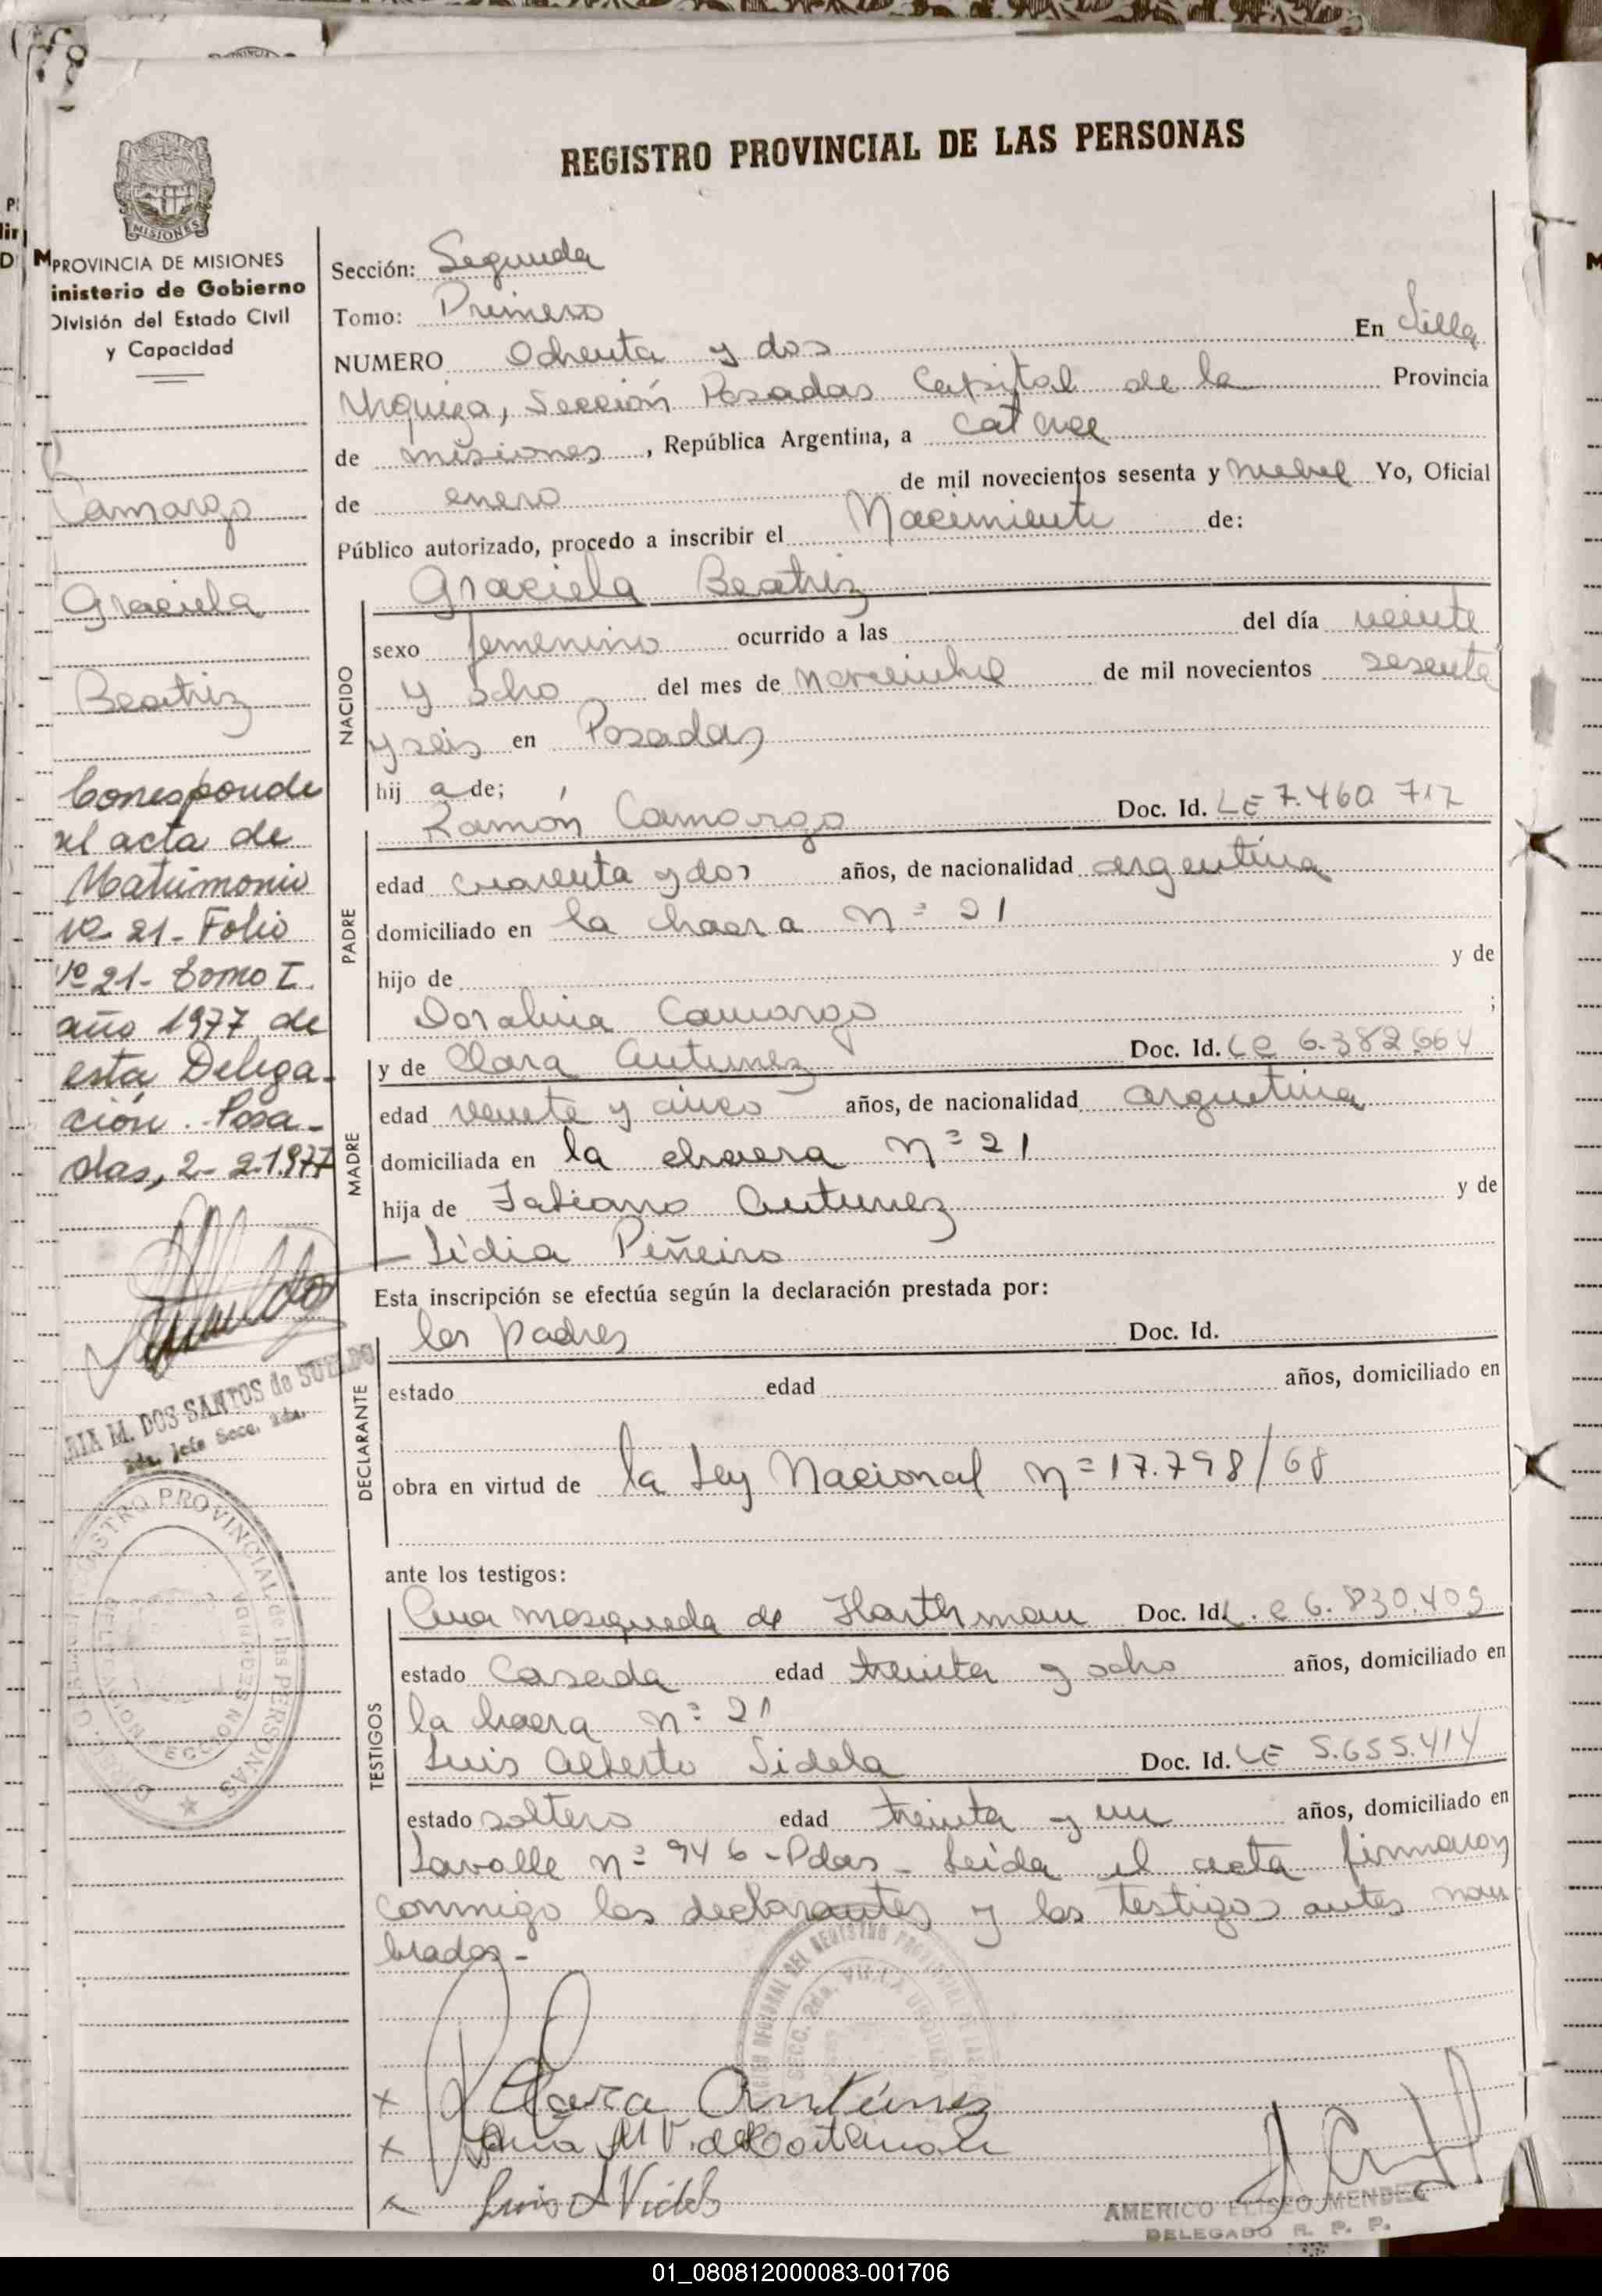 REGISTRO PROVINCIAL DE LAS PERSONAS
MISIONES
PROVINCIA DE MISIONES
Ministerio de Gobierno
División del Estado Civil
y Capacidad
Camargo
Graciela
Beatriz
Corresponde
al acta de
Matrimonio
Nº 21 - Folio
Nº 21 - Tomo I.
año 1977 de
esta Delega-
ción. Posa-
das, 2-2-1977
M. DOS SANTOS de SUELDO
REGISTRO PROVINCIAL de las PERSONAS
Sección: Segunda
Tomo: Primero
NUMERO Ochenta y dos En Villa
Urquiza, Sección Posadas Capital de la Provincia
de misiones, República Argentina, a catorce
de enero de mil novecientos sesenta y nueve Yo, Oficial
Público autorizado, procedo a inscribir el Nacimiento de:
NACIDO
Graciela Beatriz
sexo femenino ocurrido a las del día veinte
y ocho del mes de noviembre de mil novecientos sesenta
y seis en Posadas
hij a de;
PADRE
Ramón Camargo Doc. Id. LE 7.460.717
edad cuarenta y dos años, de nacionalidad argentina
domiciliado en la chacra nº 21
hijo de y de
Doralina Camargo ;
MADRE
y de Clara Antunez Doc. Id. LC 6.382.664
edad veinte y cinco años, de nacionalidad argentina
domiciliada en la chacra nº 21
hija de Fabiano Antunez y de
Lidia Piñeiro
Esta inscripción se efectúa según la declaración prestada por:
DECLARANTE
los padres Doc. Id.
estado edad años, domiciliado en
obra en virtud de la Ley Nacional nº 17.798/68
ante los testigos:
TESTIGOS
Ana Mosqueda de Harthman Doc. Id. L.C 6.830.409
estado Casada edad treinta y ocho años, domiciliado en
la chacra nº 21
Luis Alberto Videla Doc. Id. LE 5.655.414
estado soltero edad treinta y un años, domiciliado en
Lavalle nº 946 - Pdas - Leida el acta firmaron
conmigo los declarantes y los testigos antes nom
brados -
REGIONAL DEL REGISTRO PROVINCIAL DE LAS
SECC. 2da. VILLA URQUIZA
x Clara Antúnez
x
x Luis A Videla
AMERICO ELISEO MENDEZ
DELEGADO R. P. P.
01_080812000083-001706